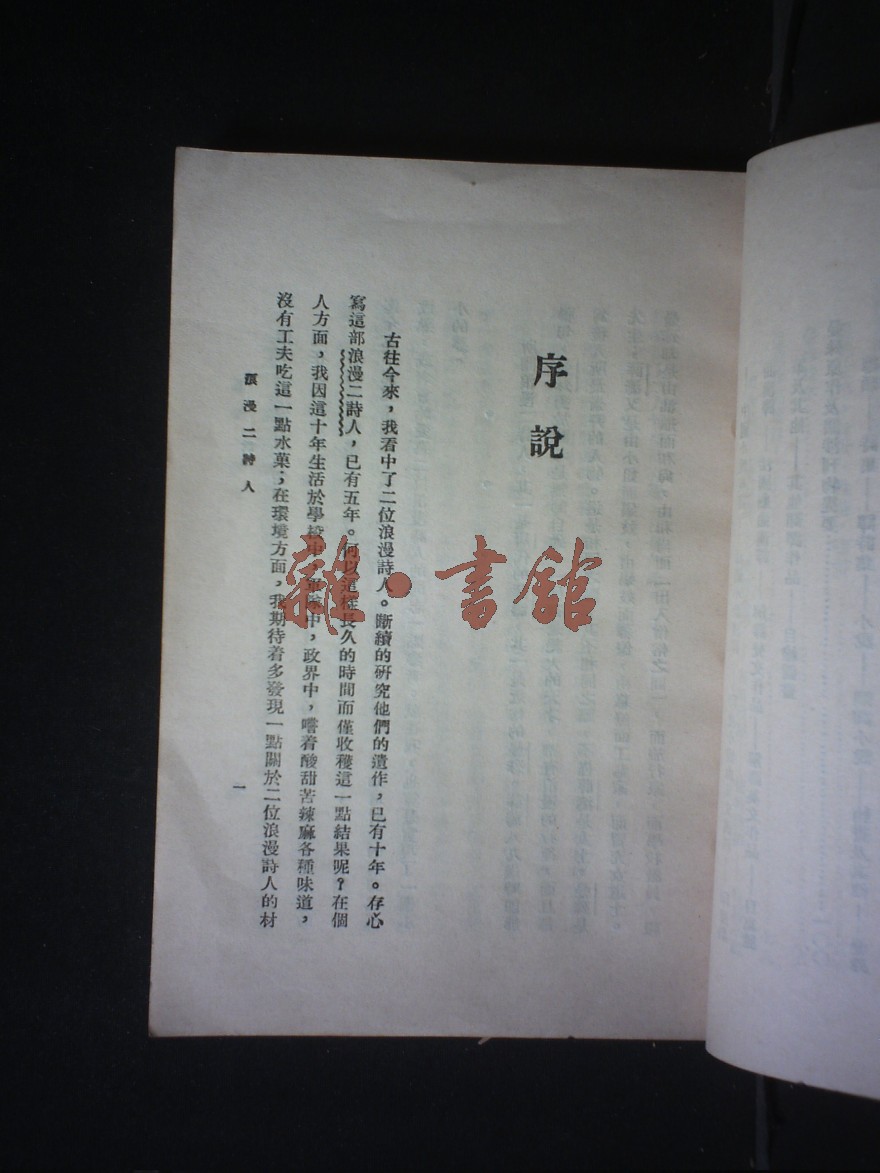 序說
古往今來，我看中了二位浪漫詩人。斷續的研究他們的遺作，已有十年。存心
寫這部浪漫二詩人，已有五年。何以這樣長久的時間而僅收穫這一點結果呢？在個
人方面，我因這十年生活於學校中，軍隊中，政界中，嚐着酸甜苦辣麻各種味道，
沒有工夫吃這一點水菓；在環境方面，我期待着多發現一點關於二位浪漫詩人的材
浪漫二詩人
一
雜·書館